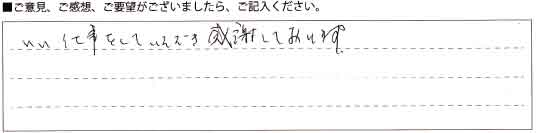 ■ご意見、ご感想、ご要望がございましたら、ご記入ください。
いい仕事をしていただき感謝しております